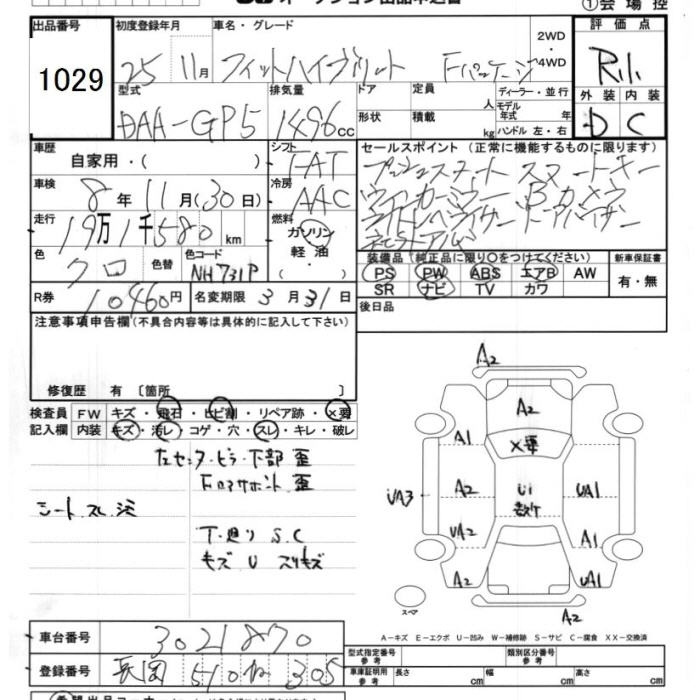 ①会場控
出品番号 初度登録年月 車名・グレード 2WD 評価点
1029 25 11月 フィットハイブリット Fパッケージ 4WD R.1.
型式 排気量 ドア 定員 人 ディーラー・並行 外装 内装
DAA-GP5 1496cc 形状 積載 kg モデル年式 年 D C
ハンドル 左・右
車歴 自家用・( ) シフト FAT セールスポイント (正常に機能するものに限ります)
車検 8年11月(30日) 冷房 AAC プッシュスタート スマートキー
走行 19万1千580km 燃料 ガソリン 軽油 ウィンカーミラー Bカメラ
ドアバイザー
色 クロ 色替 色コード NH731P 装備品 (純正品に限り○をつけてください) 新車保証書
PS PW ABS エアB AW 有・無
SR ナビ TV カワ
R券 10460円 名変期限 3月31日 後日品
注意事項申告欄(不具合内容等は具体的に記入して下さい)
修復歴 有 〔箇所 〕
検査員 FW キズ・飛石・ヒビ割・リペア跡・×要
記入欄 内装 キズ・汚レ・コゲ・穴・スレ・キレ・破レ
左センターピラー下部 歪
Fロアサポート 歪
シート スレ 汚
下廻り S.C
キズ U スリキズ
A2
A2
A1 ×要
UA3 A2 U1 UA1
UA2 A1
A2 UA1
スペア
A2
A−キズ E−エクボ U−凹み W−補修跡 S−サビ C−腐食 XX−交換済
車台番号 3021870 型式指定番号 参考 類別区分番号 参考
登録番号 長岡 510 305 車庫証明用 参考 長さ cm 幅 cm 高さ cm